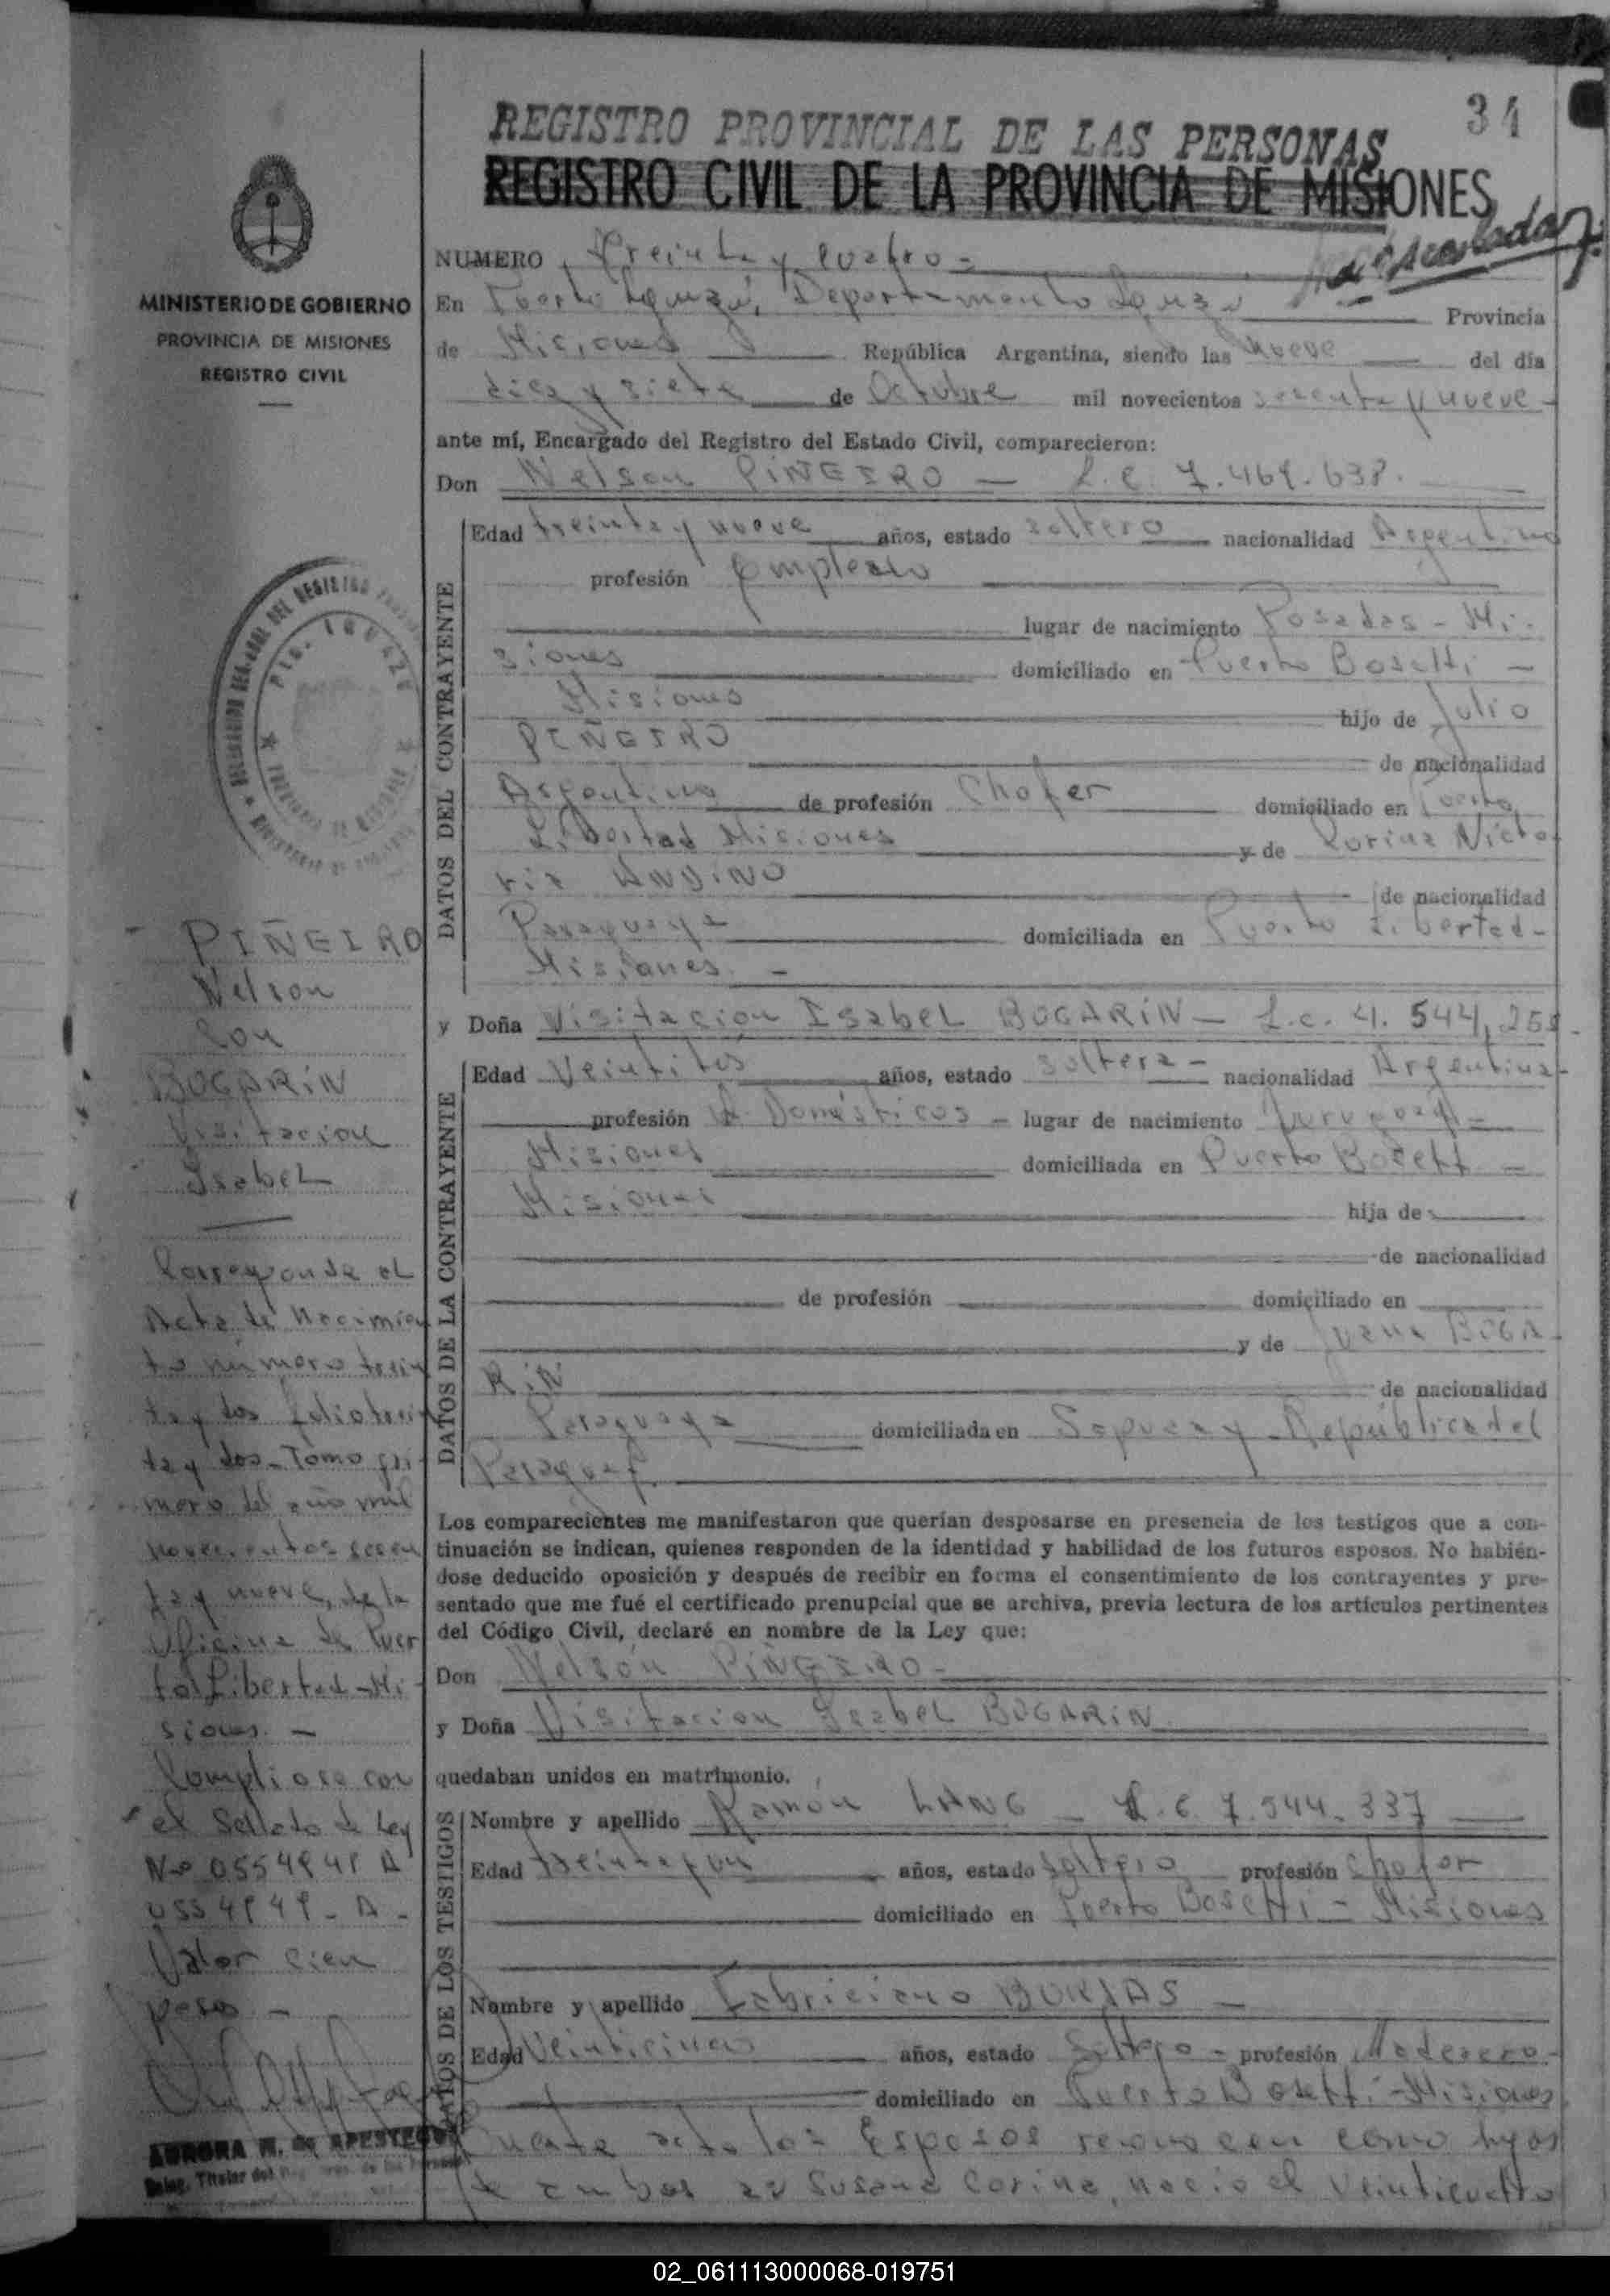 34
REGISTRO PROVINCIAL DE LAS PERSONAS
REGISTRO CIVIL DE LA PROVINCIA DE MISIONES
MINISTERIO DE GOBIERNO
PROVINCIA DE MISIONES
REGISTRO CIVIL
NUMERO Treinta y Cuatro -
En Puerto Iguazú, Departamento Iguazú Provincia
de Misiones República Argentina, siendo las Nueve del día
diez y siete de Octubre mil novecientos sesenta y nueve -
ante mí, Encargado del Registro del Estado Civil, comparecieron:
Don Nelson PIÑEIRO - L.E. 7.469.638.
DATOS DEL CONTRAYENTE
Edad treinta y nueve años, estado soltero nacionalidad Argentino
profesión Empleado
lugar de nacimiento Posadas - Mi-
siones domiciliado en Puerto Bosetti -
Misiones hijo de Julio
PIÑEIRO de nacionalidad
Argentino de profesión Chofer domiciliado en Puerto
Libertad Misiones y de Corina Victo-
ria ANDINO de nacionalidad
Paraguaya domiciliada en Puerto Libertad -
Misiones. -
y Doña Visitacion Isabel BOGARIN - L.C. 4. 544,
DATOS DE LA CONTRAYENTE
Edad Veintidos años, estado soltera - nacionalidad Argentina -
profesión Domésticos - lugar de nacimiento
Misiones domiciliada en Puerto Bosetti -
Misiones hija de
de nacionalidad
de profesión domiciliado en
y de Juana BOGA-
RIN de nacionalidad
Paraguaya domiciliada en Sapucay - República del
Paraguay.
Los comparecientes me manifestaron que querían desposarse en presencia de los testigos que a con-
tinuación se indican, quienes responden de la identidad y habilidad de los futuros esposos. No habién-
dose deducido oposición y después de recibir en forma el consentimiento de los contrayentes y pre-
sentado que me fué el certificado prenupcial que se archiva, previa lectura de los artículos pertinentes
del Código Civil, declaré en nombre de la Ley que:
Don Nelson PIÑEIRO -
y Doña Visitacion Isabel BOGARIN
quedaban unidos en matrimonio.
DATOS DE LOS TESTIGOS
Nombre y apellido Ramón LANG - L.E. 7.544.337
Edad treinta y un años, estado Soltero profesión Chofer
domiciliado en Puerto Bosetti - Misiones
Nombre y apellido Fabriciano BORJAS -
Edad Veinticinco años, estado Soltero - profesión Maderero -
domiciliado en Puerto Bosetti - Misiones
acto los Esposos reconocen como hijos
de ambos a: Susana Corina, nacio el Veinticuatro
- PIÑEIRO
Nelson
Con
BOGARIN
Visitacion
Isabel
Corresponde el
Acta de Nacimien
to número trein
ta y dos folio trein
ta y dos - Tomo pri
mero del año mil
novecientos sesen
ta y nueve, de la
Oficina de Puer
to Libertad - Mi-
siones. -
Compliose con
el Sellado de Ley
Nº 0554948 A
0554949 - A -
Valor cien
pesos -
AURORA M. de APESTEGUI
Deleg. Titular del
02_061113000068-019751